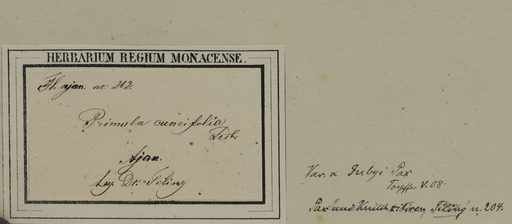 HERBARIUM REGIUM MONACENSE.
Fl. ajan. no: 202.
Primula cuneifolia
Ledb.
Ajan.
leg. Dr. Tiling
Var. a Dubyi Pax
V. 08.
Pax und Knuth
Tiling n. 204.